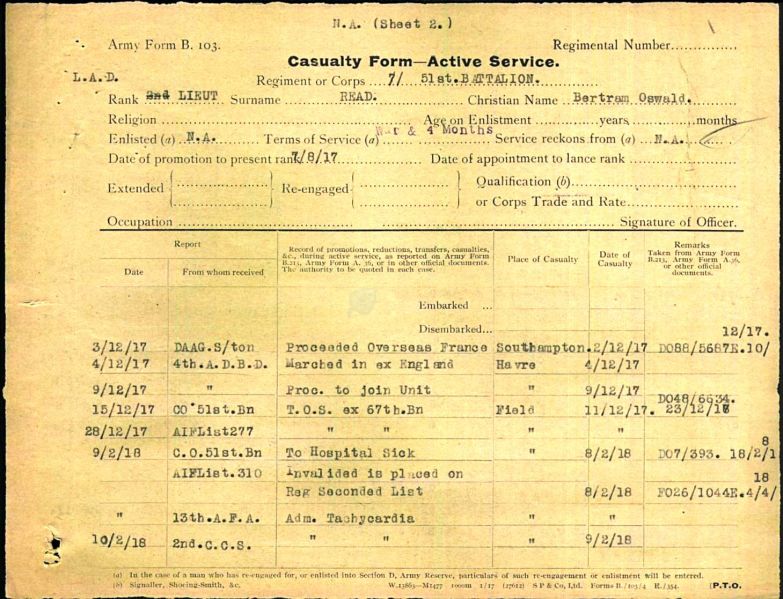 N.A. (Sheet 2.)
Army Form B. 103. Regimental Number
Casualty Form—Active Service.
L.A.D. Regiment or Corps 7/ 51st.BATTALION.
Rank 2nd LIEUT Surname READ. Christian Name Bertram Oswald.
Religion Age on Enlistment years months
Enlisted (a) N.A. Terms of Service (a) War & 4 Months Service reckons from (a) N.A.
Date of promotion to present rank 7/8/17 Date of appointment to lance rank
Extended Re-engaged Qualification (b)
or Corps Trade and Rate
Occupation Signature of Officer.
Report
Date From whom received
Record of promotions, reductions, transfers, casualties, &c., during active service, as reported on Army Form B.213, Army Form A. 36, or in other official documents. The authority to be quoted in each case.
Place of Casualty
Date of Casualty
Remarks
Taken from Army Form B.213, Army Form A.36, or other official documents.
Embarked ...
Disembarked...
12/17.
3/12/17 DAAG.S/ton Proceeded Overseas France Southampton. 2/12/17 DO88/5687E.10/
4/12/17 4th.A.D.B.D. Marched in ex England Havre 4/12/17
9/12/17 " Proc. to join Unit " 9/12/17
DO48/6634.
15/12/17 CO 51st.Bn T.O.S. ex 67th.Bn Field 11/12/17. 23/12/17
28/12/17 AIFList277 " " " "
8
9/2/18 C.O.51st.Bn To Hospital Sick " 8/2/18 DO7/393. 18/2/1
AIFList.310 Invalided is placed on
18
Reg Seconded List 8/2/18 FO26/1044E.4/4/
" 13th.A.F.A. Adm. Tachycardia " "
10/2/18 2nd.C.C.S. " " " 9/2/18
(a) In the case of a man who has re-engaged for, or enlisted into Section D, Army Reserve, particulars of such re-engagement or enlistment will be entered.
(b) Signaller, Shoeing-Smith, &c. W.13863—M1477 1000m 1/17 (27612) S P & Co, Ltd. Forms B./103/4 E./354. (P.T.O.